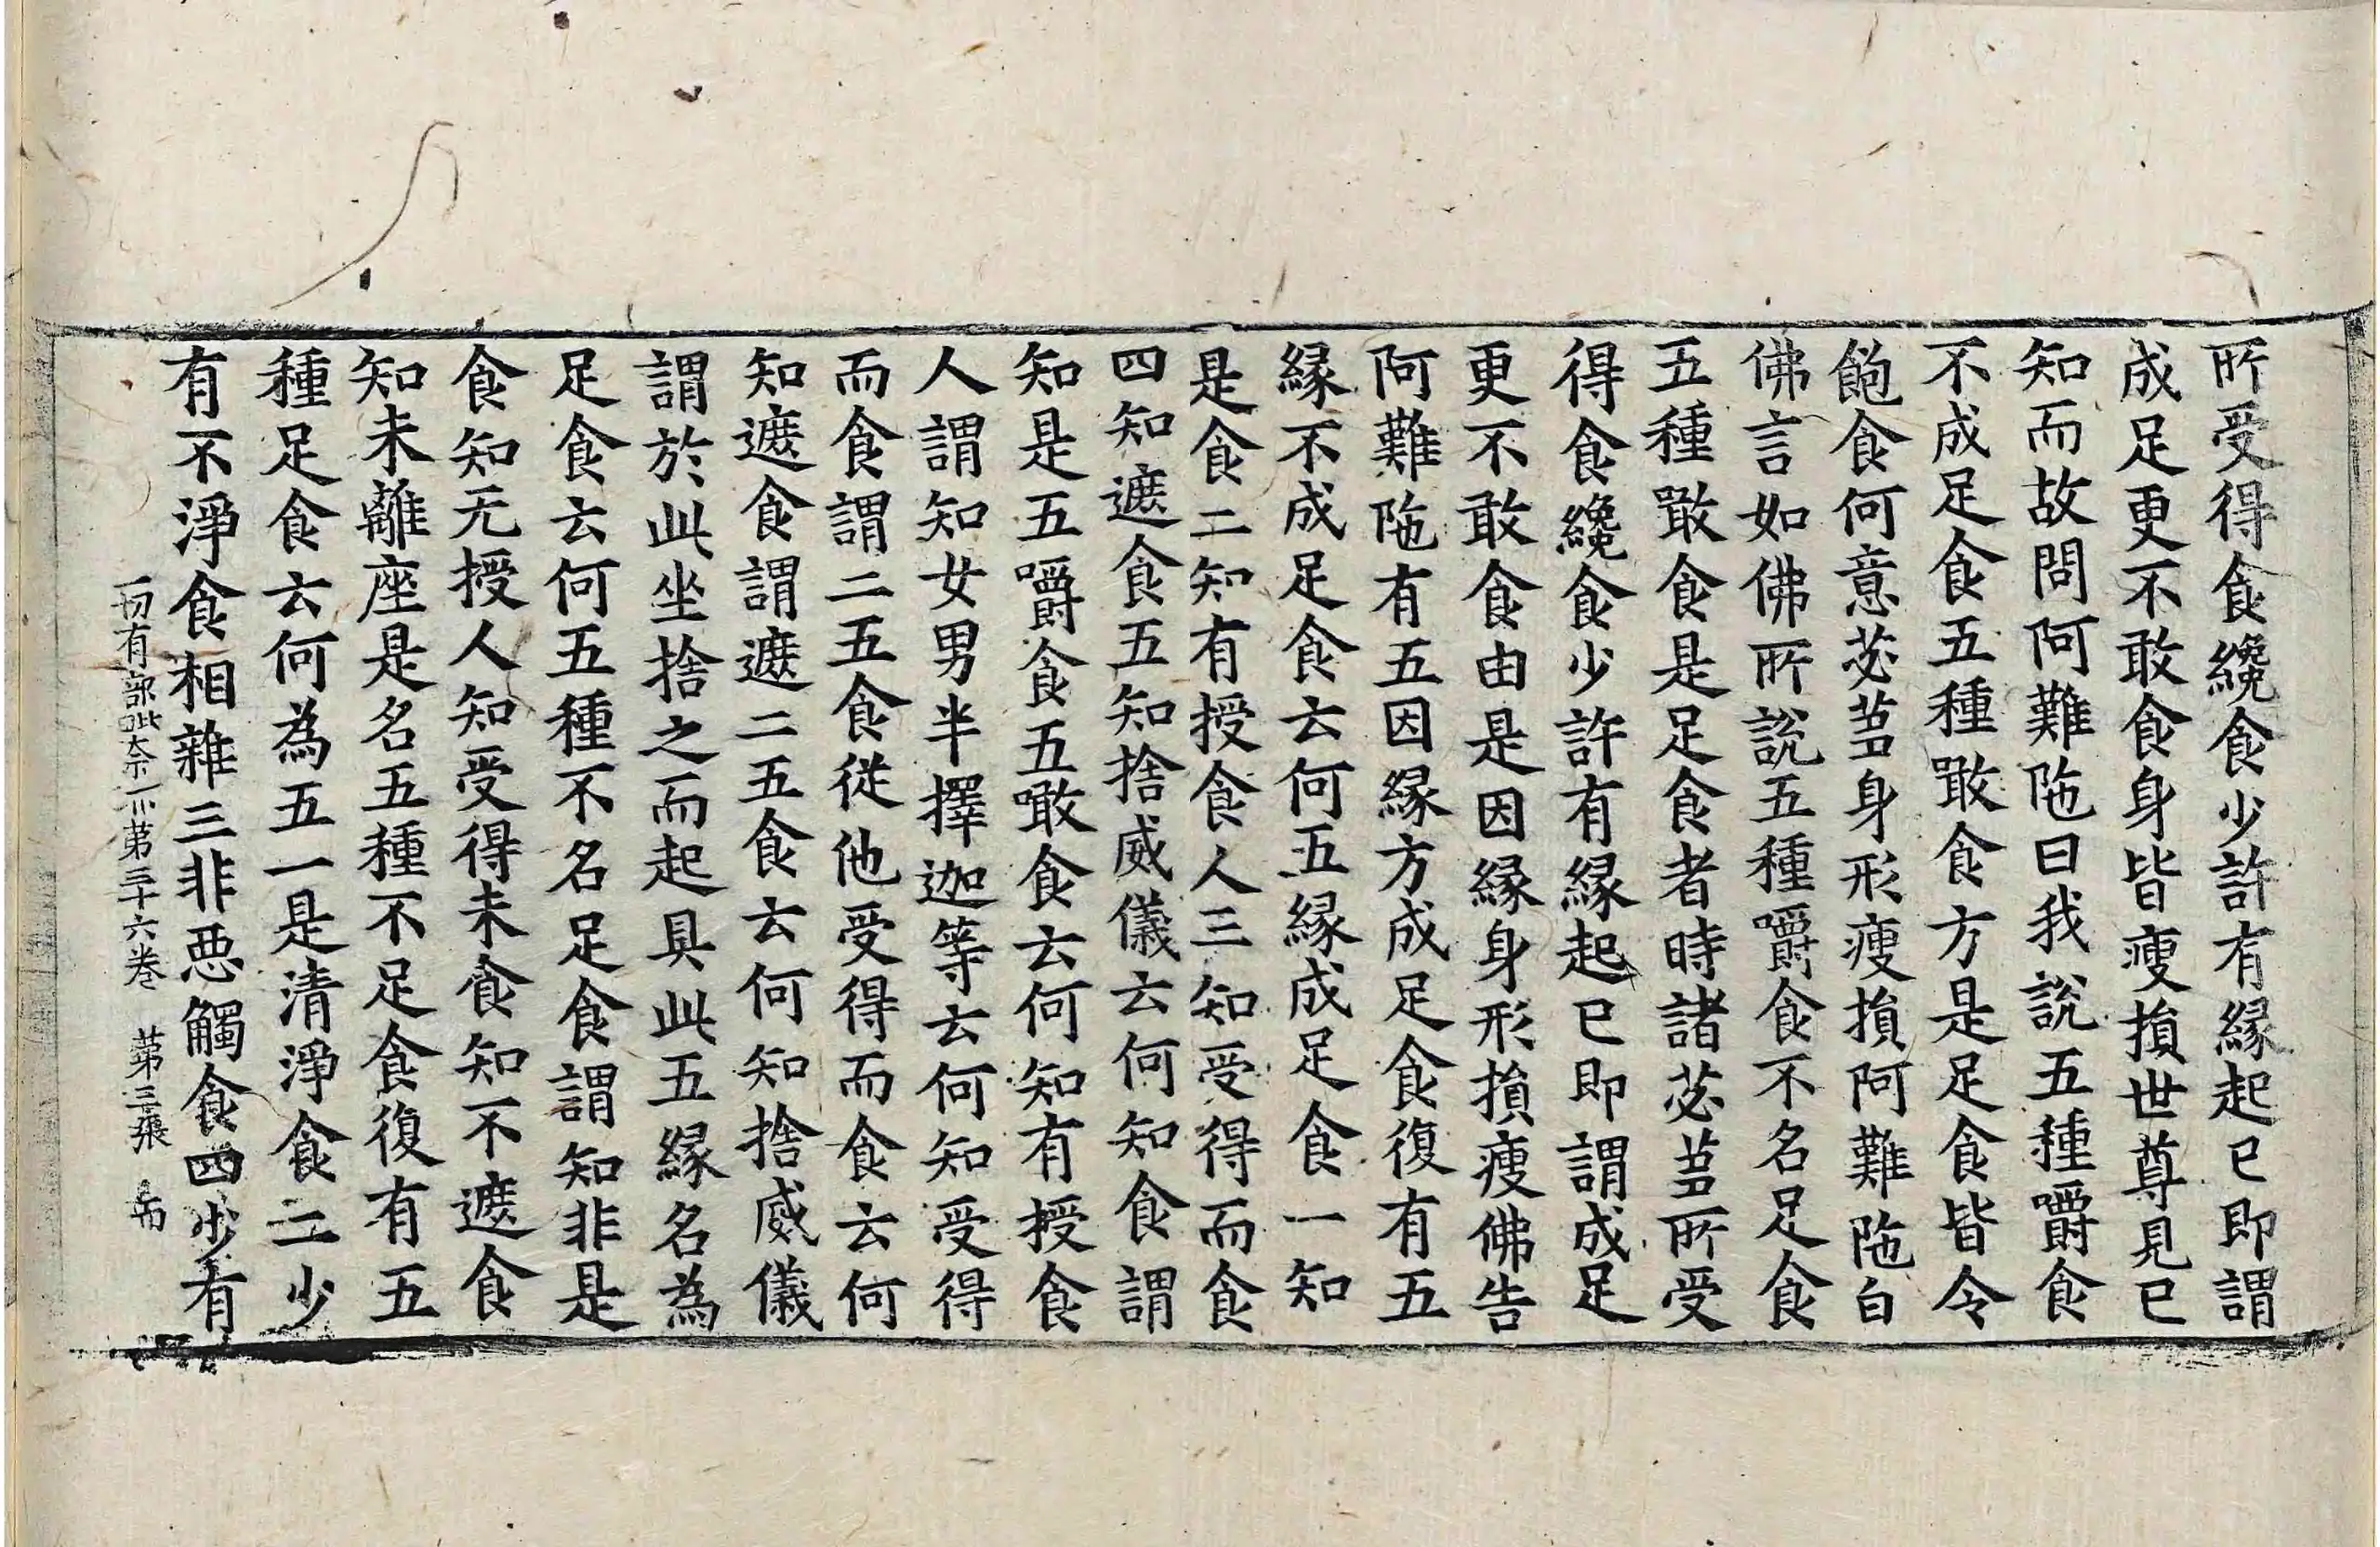 所受得食纔食少許有緣起已即謂
成足更不敢食身皆瘦損世尊見已
知而故問阿難陁曰我說五種嚼食
不成足食五種噉食方是足食皆令
飽食何意苾芻身形瘦損阿難陁白
佛言如佛所說五種嚼食不名足食
五種噉食是足食者時諸苾芻所受
得食纔食少許有緣起已即謂成足
更不敢食由是因緣身形損瘦佛告
阿難陁有五因緣方成足食復有五
緣不成足食云何五緣成足食一知
是食二知有授食人三知受得而食
四知遮食五知捨威儀云何知食謂
知是五嚼食五噉食云何知有授食
人謂知女男半擇迦等云何知受得
而食謂二五食從他受得而食云何
知遮食謂遮二五食云何知捨威儀
謂於此坐捨之而起具此五緣名為
足食云何五種不名足食謂知非是
食知无授人知受得未食知不遮食
知未離座是名五種不足食復有五
種足食云何為五一是清淨食二少
有不淨食相雜三非惡觸食四少有
一切有部毗奈耶第三十六卷 第三張